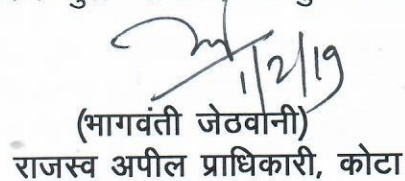 1/2/19
(भागवंती जेठवानी)
राजस्व अपील प्राधिकारी, कोटा